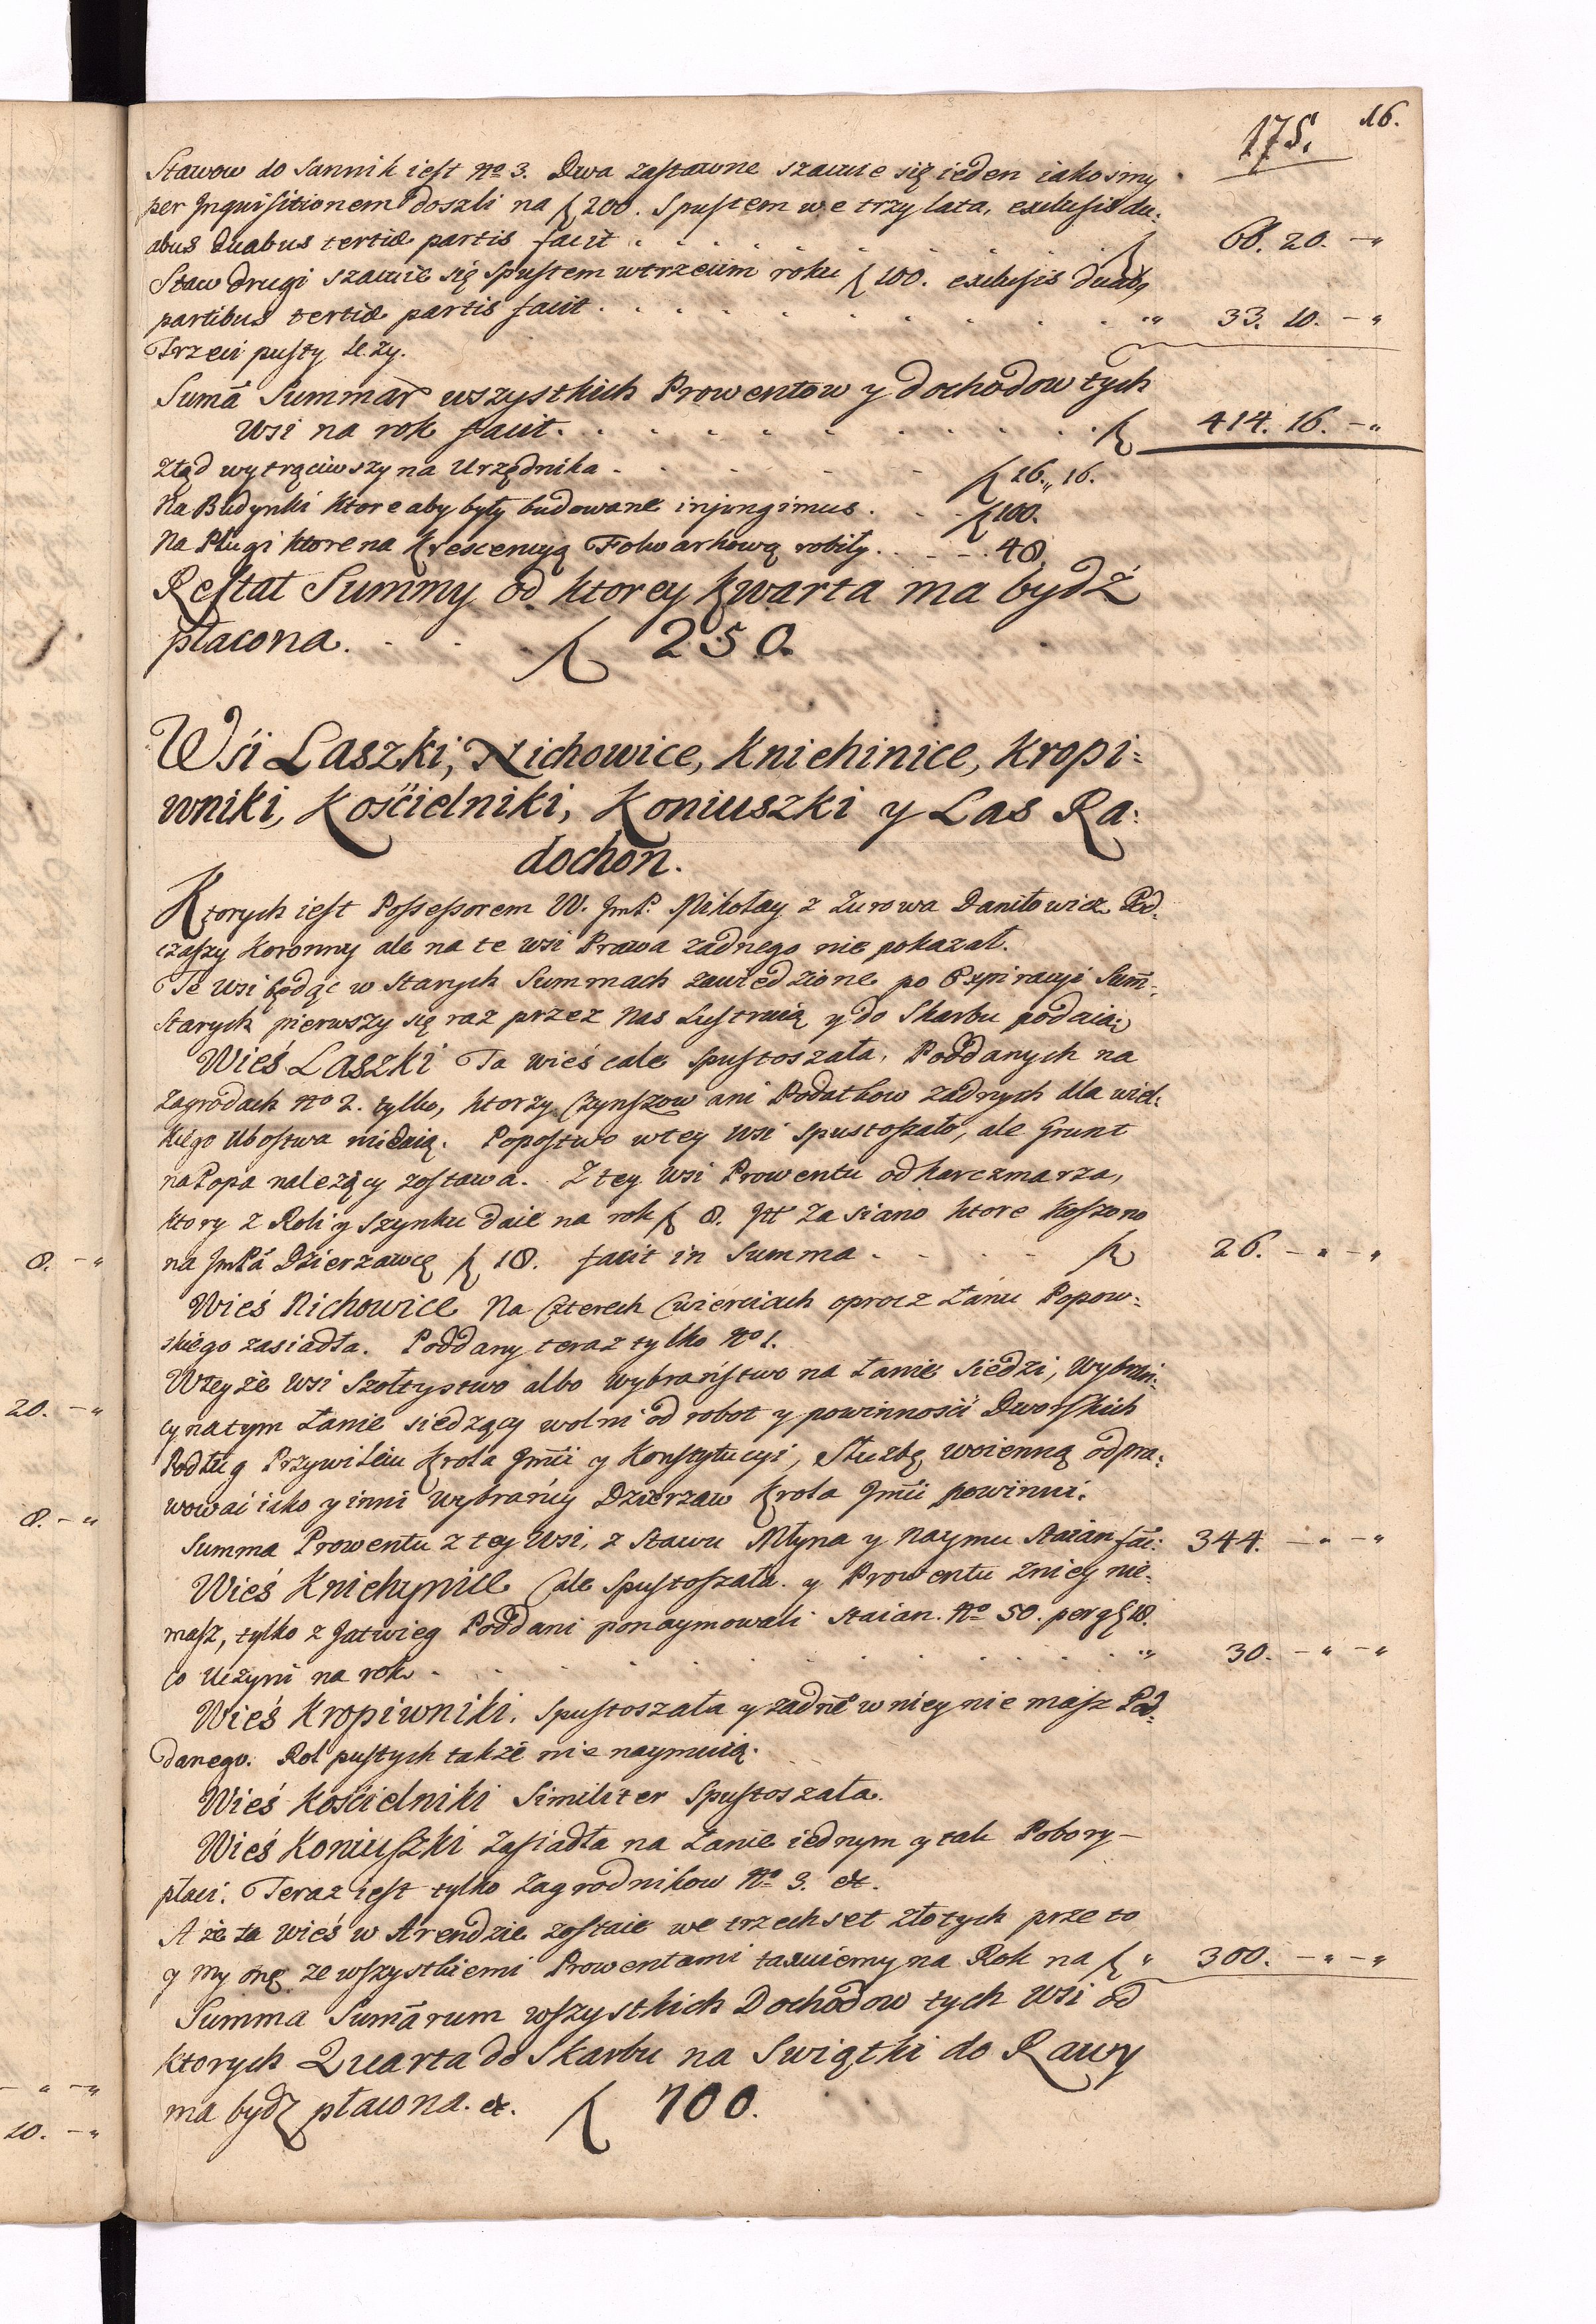 16.
175.
Stawow do Sannik iest No 3. Dwa zastawne szacuie się ieden iakosmy
per Inquisitionem doszli na f 200. Spustem we trzy lata, exclusis du-
abus duabus tertiæ partis facit . . . . f 66. 20. -„
Staw drugi szacuie się spustem w trzecim roku f 100. exclusis duab9
partibus tertiæ partis facit . . . . „ 33. 10. -„
Trzeci pusty leży.
Suma Summar wszystkich Prowentow y dochodow tych
Wsi na rok facit . . . . f 414. 16. -„
Ztąd wytrąciwszy na Urzędnika . . . f 16„ 16.
Na Budynki ktore aby były budowane injungimus . . f 100.
Na Pługi ktore na Krescencyą Folwarkową robiły . . . 48
Restat Summy od ktorey kwarta ma bydź
płacona . . . f 250.
Wsi Laszki, Nichowice, Knichinice, Kropi-
wniki, Kościelniki, Koniuszki y Las Ra-
dochon.
Ktorych iest Possessorem W. JmP. Mikołay z Zurowa Daniłowicz Pod-
czaszy Koronny ale na te wsi Prawa zadnego nie pokazał.
Te wsi będąc w Starych Summach zawiedzione po Expiracyi Sum-
Starych pierwszy się raz przez Nas Lustruią y do Skarbu podaią
Wieś Laszki Ta wieś cale spustoszała, Poddanych na
Zagrodach No 2. tylko, ktorzy Czynszow ani Podatkow zadnych dla wiel-
kiego Ubostwa niedaią. Popostwo w tey wsi spustoszało, ale Grunt
na Popa należący zostawa. Z tey wsi Prowentu od karczmarza,
ktory z Roli y szynku daie na rok f 8. Itt Za siano ktore koszono
na JmPa Dzierzawcę f 18. facit in Summa . . . f 26. -„-„
Wieś Nichowice Na Czterech Cwierciach oprocz Łanu Popow-
skiego zasiadła. Poddany teraz tylko No 1.
W teyże wsi Szołtystwo albo Wybraństwo na Łanie siedzi, Wybrań-
cy na tym Łanie siedzący wolni od robot y powinności Dworskich
Podług Przywileiu Krola Jmci y Konstytucyi, Służbę woienną odpra-
wować iako y inni Wybrańcy Dzierzaw Krola Jmci powinni.
Summa Prowentu z tey Wsi, z Stawu Młyna y Naymu Staian fac: 344. -„-„
Wieś Knichynice Cale Spustoszała y Prowentu z niey nie-
masz, tylko z Jatwieg Poddani ponaymowali Staian. No 50. per gf 18.
co uczyni na rok . . . . „ 30. -„-„
Wieś Kropiwniki. Spustoszała y zadne w niey nie masz Pod-
danego. Rol pustych także nie naymuią.
Wieś Kościelniki Similiter Spustoszała.
Wieś Koniuszki Zasiadła na Łanie iednym y tak Pobory-
płaci. Teraz iest tylko Zagrodnikow No 3. &.
A że ta wieś w Arendzie zostaie we trzechset złotych przeto
y my onę ze wszystkiemi Prowentami taxuiemy na Rok na f „ 300. -„-„
Summa Sumarum wszystkich Dochodow tych wsi od
ktorych Quarta do Skarbu na Swiątki do Rawy
ma bydź płacona. &. f 700.
8. -„
20. -„
8. -„
-„-„
10. -„